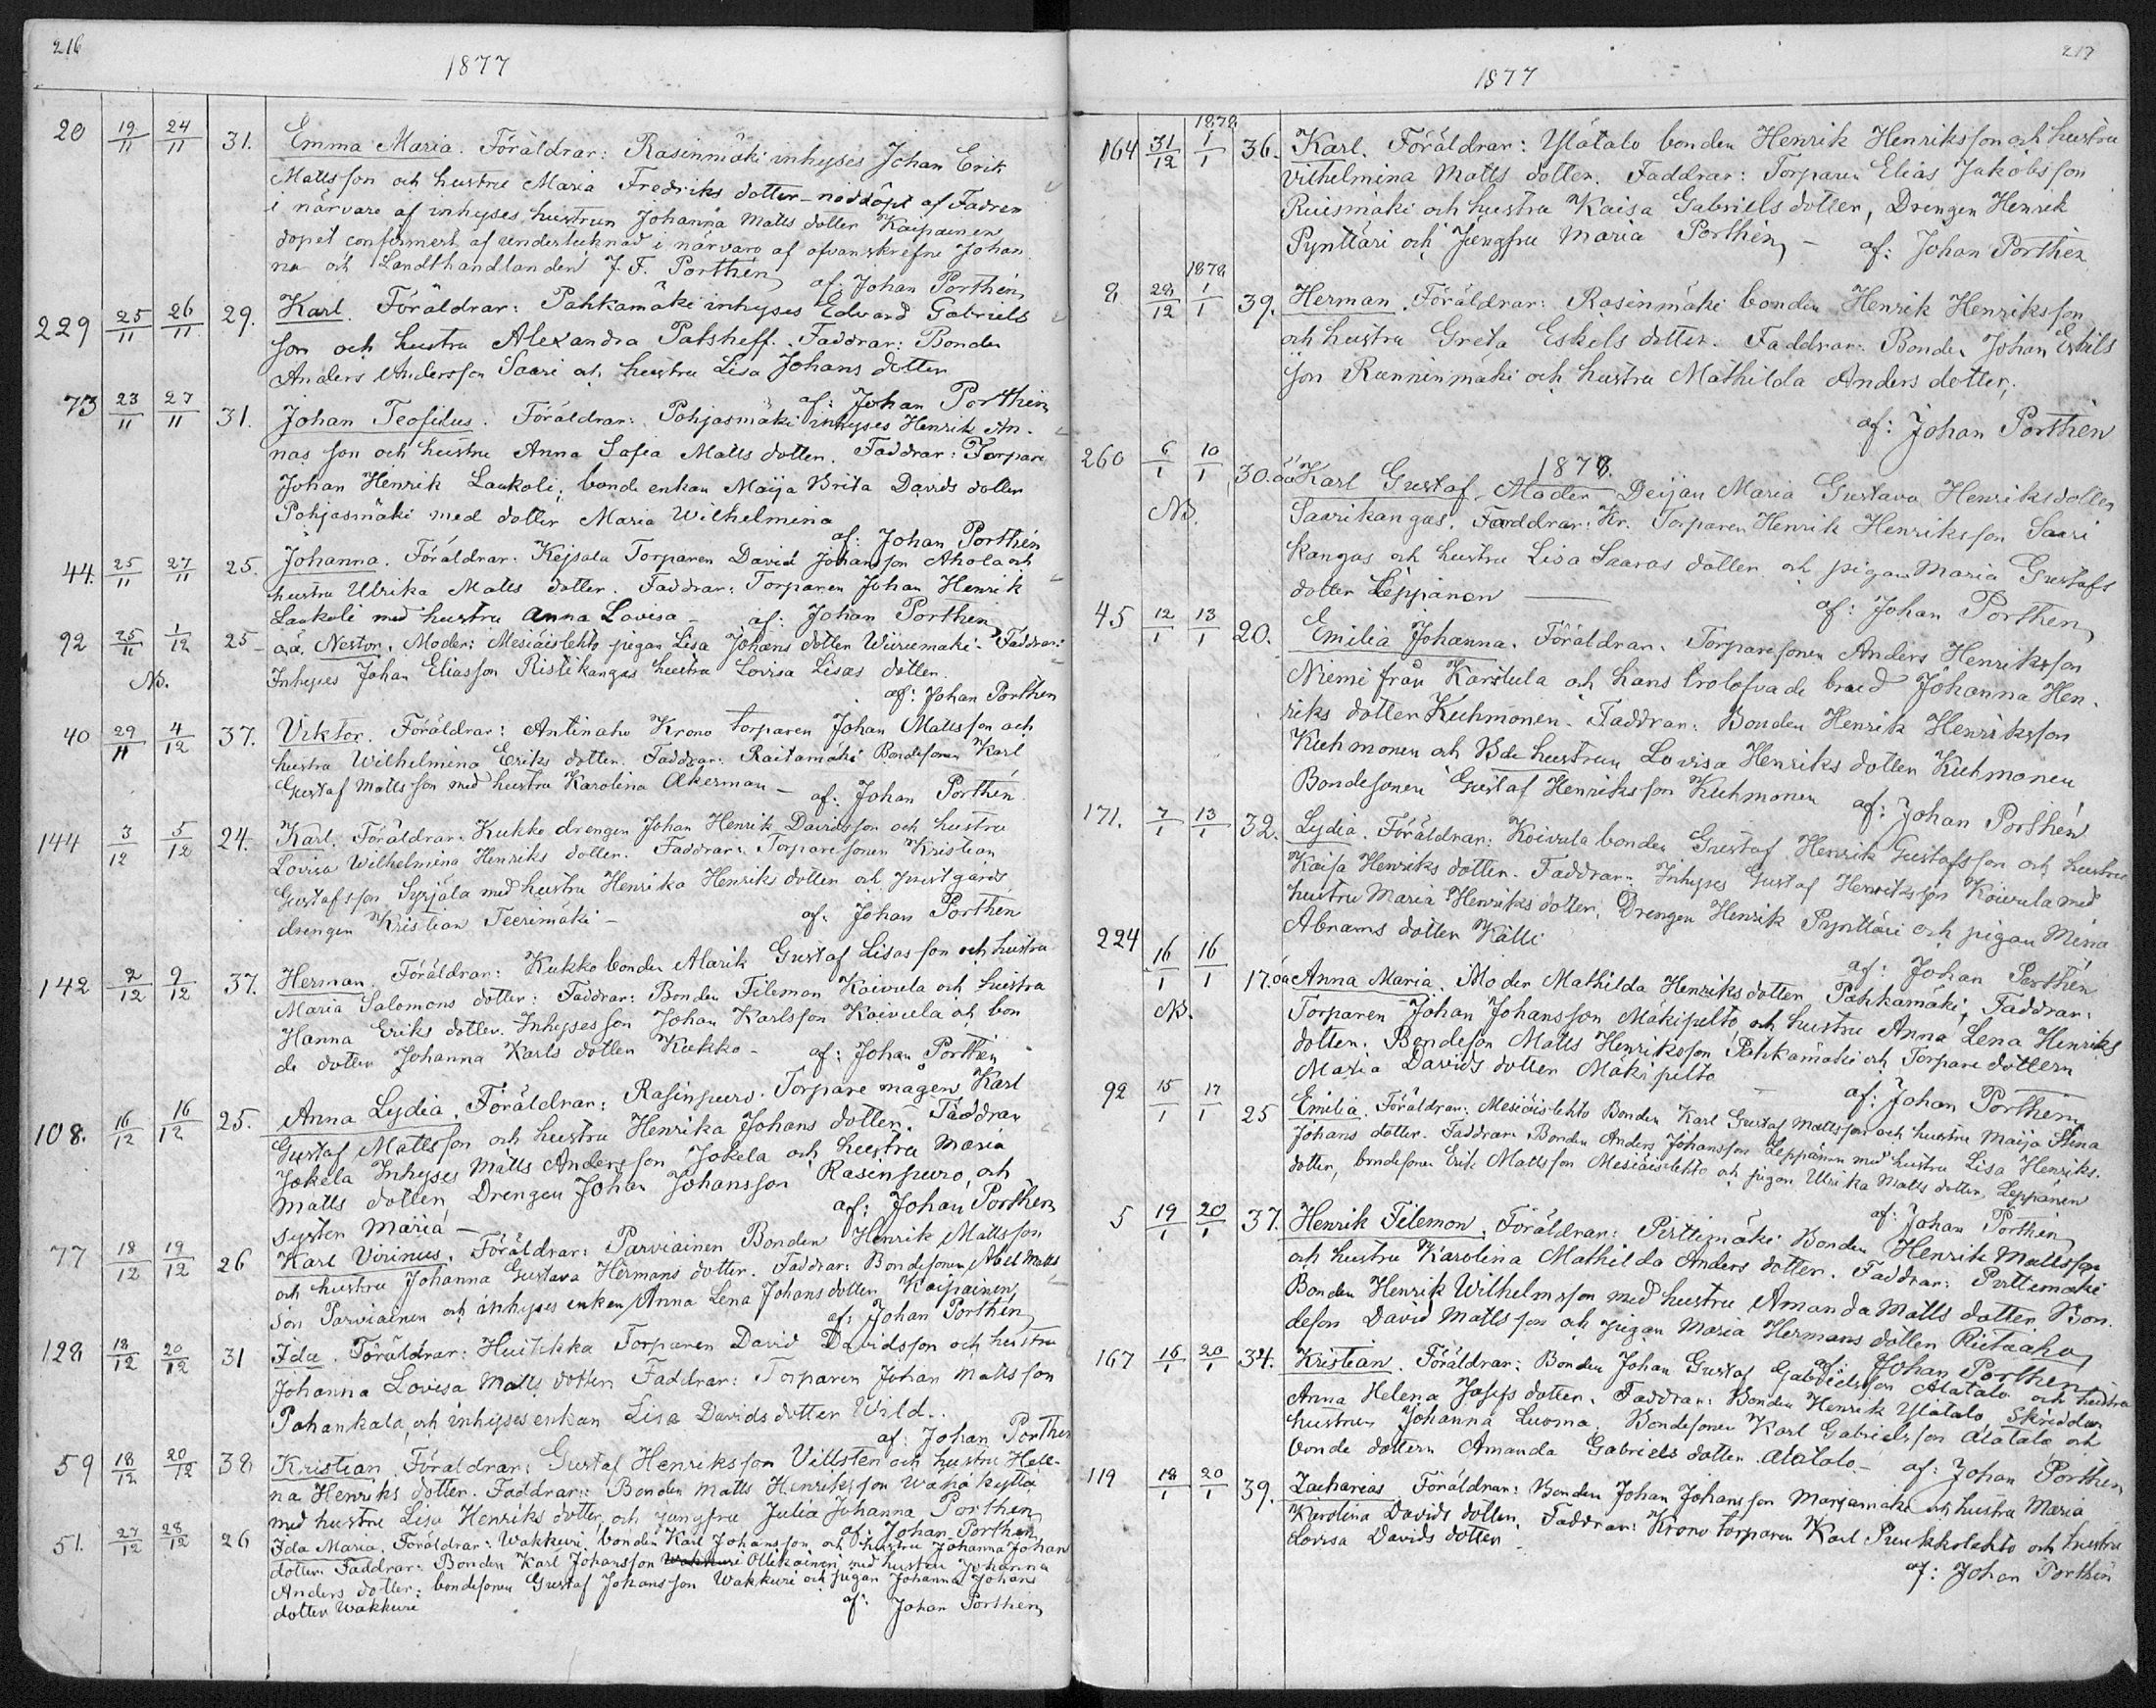 216
1877
20 19/11 24/11 31. Emma Maria. Föräldrar: Rasinmäki inhyses Johan Erik
Mattsson och hustru Maria Fredriks dotter - nöddöpt af Fadren
i närvaro af inhyses hustrun Johanna Matts dotter Kaipainen
dopet confirmert af undertecknad i närvaro af ofvanskrefne Johan
na och Landthandlanden J. F. Porthén af: Johan Porthén
229 25/11 26/11 29. Karl. Föräldrar: Pahkamäki inhyses Edvard Gabriels
son och hustru Alexandra Patsheff. Faddrar: Bonden
Anders Andersson Saari och hustru Lisa Johans dotter
af: Johan Porthén
73 23/11 27/11 31. Johan Teofilus. Föräldrar: Pohjasmäki inhyses Henrik An-
nas son och hustru Anna Sofia Matts dotter. Faddrar: Torpare
Johan Henrik Laukoli, bonde enkan Maija Brita Davids dotter
Pohjasmäki med dotter Maria Wilhelmina
af: Johan Porthén
44. 25/11 27/11 25. Johanna. Föräldrar: Kejsala Torparen David Johansson Ahola och
hustru Ulrika Matts dotter. Faddrar: Torparen Johan Henrik
Laukoli med hustru Anna Lovisa - af: Johan Porthén
92 25/11 1/12 25 o.ä. Nestor. Moder: Mesiäislehto pigan Lisa Johans dotter Wiiremäki - Faddrar:
NB. Inhyses Johan Eliasson Ristikangas hustru Lovisa Lisas dotter.
af: Johan Porthén
40 29/11 4/12 37. Viktor. Föräldrar: Antinaho Krono torparen Johan Mattsson och
hustru Wilhelmina Eriks dotter. Faddrar: Raitamäki Bondesonen Karl
Gustaf Mattsson med hustru Karolina Akerman - af: Johan Porthén
144 3/12 5/12 24. Karl. Föräldrar: Kukko drengen Johan Henrik Davidsson och hustru
Lovisa Wilhelmina Henriks dotter. Faddrar: Torparesonen Kristian
Gustafsson Syrjälä med hustru Henrika Henriks dotter och prestgårds
drengen Kristian Teerimäki - af: Johan Porthén
142 2/12 9/12 37. Herman. Föräldrar: Kukko bonden Alarik Gustaf Lisasson och hustru
Maria Salomons dotter: Faddrar: Bonden Filemon Koivula och hustru
Hanna Eriks dotter. Inhysesson Johan Karlsson Koivula och bon
de dotter Johanna Karls dotter Kukko - af: Johan Porthén
108. 16/12 16/12 25. Anna Lydia. Föräldrar: Rasinpuro Torpare mågen Karl
Gustaf Mattsson och hustru Henrika Johans dotter. Faddrar
Jokela Inhyses Matts Andersson Jokela och hustru Maria
Matts dotter, Drengen Johan Johansson Rasinpuro, och
syster Maria - af: Johan Porthén
77 18/12 19/12 26 Karl Virinus. Föräldrar: Parviainen Bonden Henrik Mattsson
och hustru Johanna Gustava Hermans dotter. Faddrar: Bondesonen Abel Matts
son Parviainen och inhyses enkan Anna Lena Johans dotter Kaipainen
af: Johan Porthén
128 18/12 20/12 31 Ida. Föräldrar: Huitikka Torparen David Davidsson och hustru
Johanna Lovisa Matts dotter Faddrar: Torparen Johan Mattsson
Pohankala, och inhyses enkan Lisa Davids dotter Wild.
af: Johan Porthén
59 18/12 20/12 38 Kristian. Föräldrar: Gustaf Henriksson Villsten och hustru Hele-
na Henriks dotter. Faddrar: Bonden Matts Henriksson Wähäkyttä
med hustru Lisa Henriks dotter, och jungfru Julia Johanna Porthén
af: Johan Porthén
51. 27/12 28/12 26 Ida Maria. Föräldrar: Wakkuri bonden Karl Johansson och hustru Johanna Johan
dotter. Faddrar: Bonden Karl Johansson Wakkuri Ollikainen med hustru Johanna
Anders dotter: bondesonen Gustaf Johansson Wakkuri och pigan Johanna Johans
dotter Wakkuri af: Johan Porthén
217
1877
164 31/12 1878 1/1 36. Karl. Föräldrar: Ylätalo bonden Henrik Henriksson och hustru
Vilhelmina Matts dotter. Faddrar: Torparen Elias Jakobsson
Ruismäki och hustru Kaisa Gabriels dotter, Drengen Henrik
Pynttäri och Jungfru Maria Porthén, - af: Johan Porthén
8 28/12 1878 1/1 39. Herman. Föräldrar: Rasinmäki bonden Henrik Henriksson
och hustru Greta Eskels dotter. Faddrar: Bonden Johan Eskils
son Runninmäki och hustru Mathilda Anders dotter,
af: Johan Porthén
1878.
260 6/1 10/1 30. oä Karl Gustaf. Moder Deijan Maria Gustava Henriksdotter
NB. Saarikangas. Faddrar: Kr. Torparen Henrik Henriksson Saari
kangas och hustru Lisa Saaras dotter och pigan Maria Gustafs
dotter Leppänen af: Johan Porthén
45 12/1 13/1 20. Emilia Johanna. Föräldrar: Torparesonen Anders Henriksson
Niemi från Karstula och hans trolofvade brud Johanna Hen-
riks dotter Kuhmonen. Faddrar: Bonden Henrik Henriksson
Kuhmonen och Bde hustrun Lovisa Henriks dotter Kuhmonen
Bondesonen Gustaf Henriksson Kuhmonen af: Johan Porthén
171. 7/1 13/1 32. Lydia. Föräldrar: Koivula bonden Gustaf Henrik Gustafsson och hustru
Kaisa Henriks dotter. Faddrar: Inhyses Gustaf Henriksson Koivula med
hustru Maria Henriks dotter, Drengen Henrik Pynttäri och pigan Mina
Abrams dotter Källi
af: Johan Porthén
224 16/1 16/1 17. oä Anna Maria. Moder Mathilda Henriks dotter Pahkamäki, Faddrar:
NB. Torparen Johan Johansson Mäkipelto och hustru Anna Lena Henriks
dotter. Bondeson Matts Henriksson Pahkamäki och Torpare dottern
Maria Davids dotter Mäkipelto - af: Johan Porthén
92 15/1 17/1 25 Emilia. Föräldrar: Mesiäislehto Bonden Karl Gustaf Mattsson och hustru Maija Stina
Johans dotter. Faddrar: Bonden Anders Johansson Leppänen med hustru Lisa Henriks-
dotter, bondesonen Erik Mattsson Mesiäislehto och pigan Ulrika Matts dotter Leppänen
af: Johan Porthén
5 19/1 20/1 37. Henrik Filemon. Föräldrar: Pirttimäki Bonden Henrik Mattsson
och hustru Karolina Mathilda Anders dotter. Faddrar: Pirttimäki
Bonden Henrik Wilhelmsson med hustru Amanda Matts dotter Bon-
deson David Mattsson och pigan Maria Hermans dotter Riitaaho
af: Johan Porthén
167 16/1 20/1 34. Kristian. Föräldrar: Bonden Johan Gustaf Gabrielsson Alatalo och hustru
Anna Helena Josefs dotter. Faddrar: Bonden Henrik Ylätalo, Skräddar
hustrun Johanna Luoma. Bondesonen Karl Gabrielsson Alatalo och
bonde dottern Amanda Gabriels dotter Alatalo - af: Johan Porthén
119 18/1 20/1 39. Zacharias. Föräldrar: Bonden Johan Johansson Marjamäki och hustru Maria
Karolina Davids dotter. Faddrar: Krono torparen Karl Puukkolehto och hustru
Lovisa Davids dotter -
af: Johan Porthén